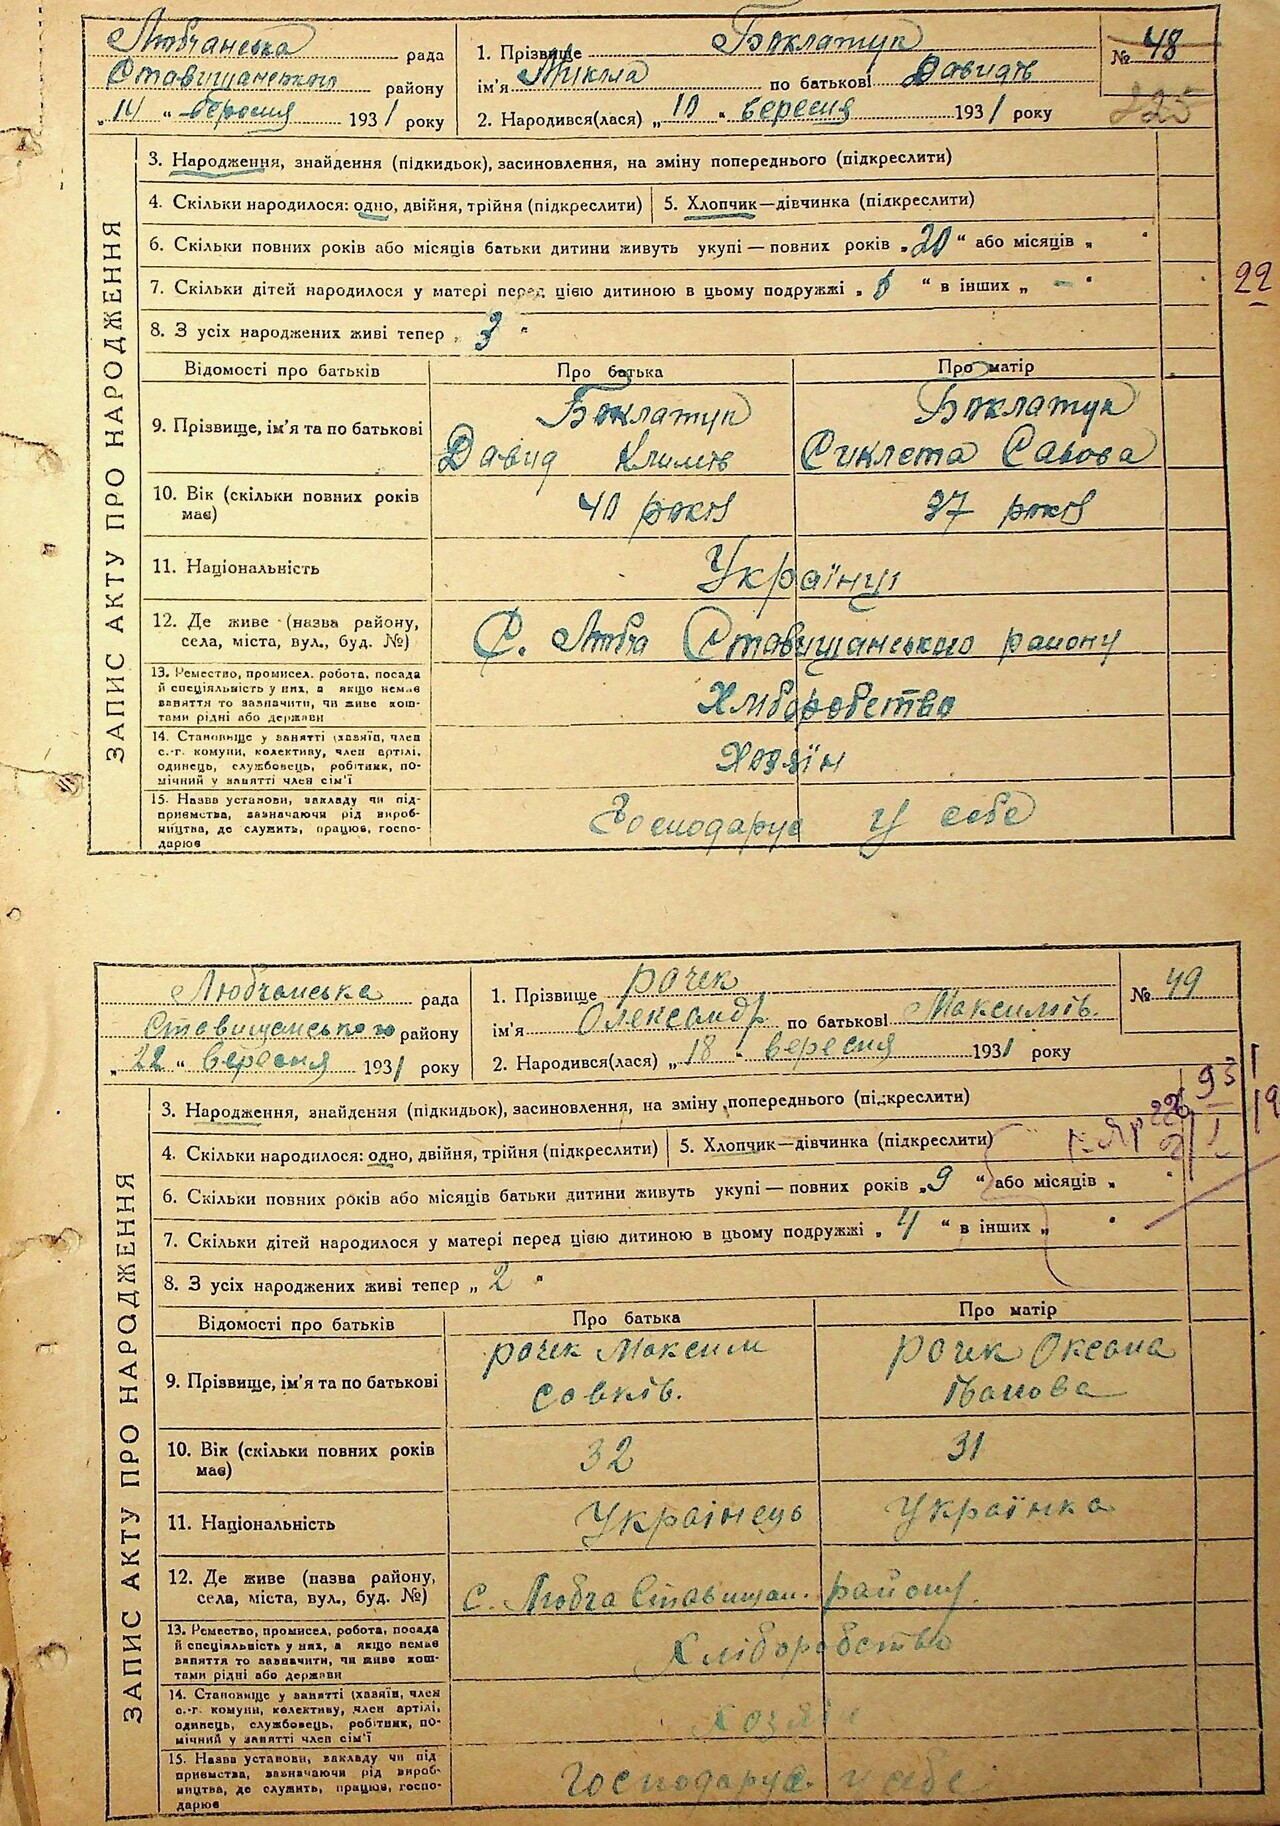 Любчанська рада
Ставищанського району
„14 “ вересня 1931 року
1. Прізвище Боклатук
ім'я Мікола по батькові Давидів
2. Народився(лася) „10 “ вересня 1931 року
№ 48
225
ЗАПИС АКТУ ПРО НАРОДЖЕННЯ
3. Народження, знайдення (підкидьок), засиновлення, на зміну попереднього (підкреслити)
4. Скільки народилося: одно, двійня, трійня (підкреслити) 5. Хлопчик—дівчинка (підкреслити)
6. Скільки повних років або місяців батьки дитини живуть укупі — повних років „20“ або місяців „ “
22
7. Скільки дітей народилося у матері перед цією дитиною в цьому подружжі „ “ в інших „ — “
8. З усіх народжених живі тепер „ 3 “
Відомості про батьків Про батька Про матір
9. Прізвище, ім'я та по батькові
Боклатук Давид Климів
Боклатук Сиклета Савова
10. Вік (скільки повних років має)
40 років 37 років
11. Національність Українці
12. Де живе (назва району,
села, міста, вул., буд. №)
С. Любча Ставищанського району
13. Ремество, промисел, робота, посада
й спеціяльність у них, а якщо немає
заняття то зазначити, чи живе кош-
тами рідні або держави
Хліборобство
14. Становище у занятті (хазяїн, член
с.-г. комуни, колективу, член артілі,
одинець, службовець, робітник, по-
мічний у занятті член сім'ї
Хозяїн
15. Назва установи, закладу чи під-
приємства, зазначаючи рід вироб-
ництва, де служить, працює, госпо-
дарює
Господарує у себе
Любчанська рада
Ставищанського району
„ 22 “ вересня 1931 року
1. Прізвище Рочек
ім'я Олександр по батькові Максимів.
2. Народився(лася) „ 18 “ вересня 1931 року
№ 49
ЗАПИС АКТУ ПРО НАРОДЖЕННЯ
3. Народження, знайдення (підкидьок), засиновлення, на зміну попереднього (підкреслити)
4. Скільки народилося: одно, двійня, трійня (підкреслити) 5. Хлопчик—дівчинка (підкреслити)
6. Скільки повних років або місяців батьки дитини живуть укупі — повних років „9 “ або місяців „ “
7. Скільки дітей народилося у матері перед цією дитиною в цьому подружжі „ 4 “ в інших „ “
8. З усіх народжених живі тепер „ 2 “
Відомості про батьків Про батька Про матір
9. Прізвище, ім'я та по батькові
Рочек Максим Совків.
Рочек Оксана Іванова
10. Вік (скільки повних років має)
32 31
11. Національність Українець Українка
12. Де живе (назва району,
села, міста, вул., буд. №)
с. Любча Ставищан. району.
13. Ремество, промисел, робота, посада
й спеціяльність у них, а якщо немає
заняття то зазначити, чи живе кош-
тами рідні або держави
Хліборобство
14. Становище у занятті (хазяїн, член
с.-г. комуни, колективу, член артілі,
одинець, службовець, робітник, по-
мічний у занятті член сім'ї
Хозяїн
15. Назва установи, закладу чи під
приємства, зазначаючи рід вироб-
ництва, де служить, працює, госпо-
дарює
Господарує. у себе